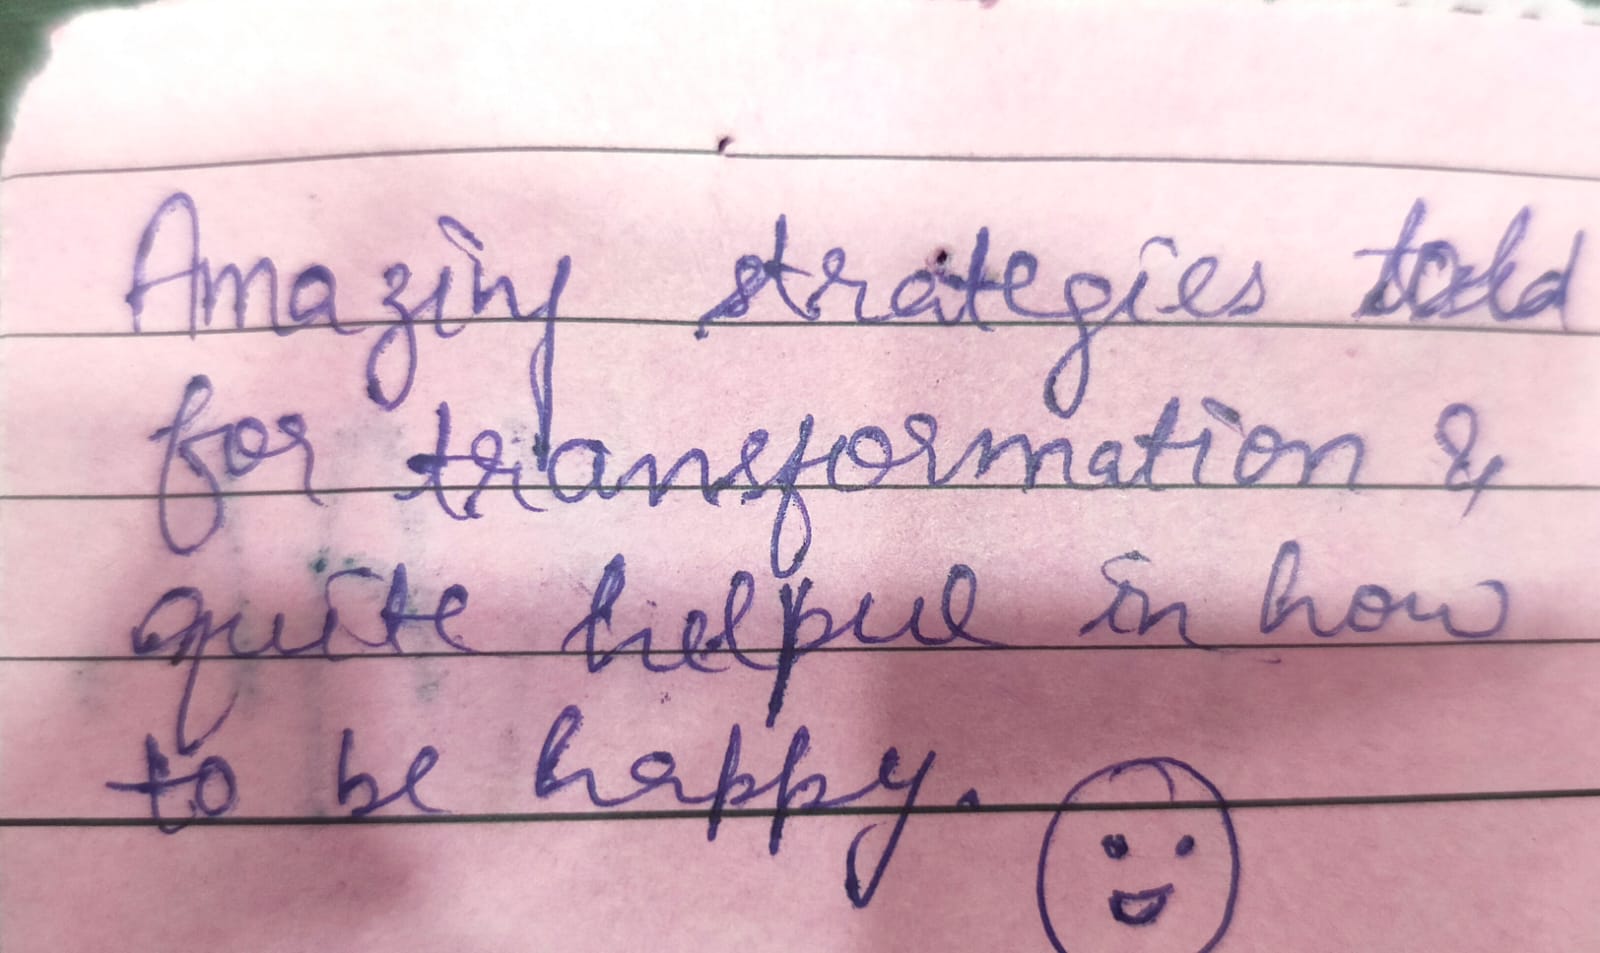 Amazing strategies told
for transformation &
quite helpul in how
to be happy.